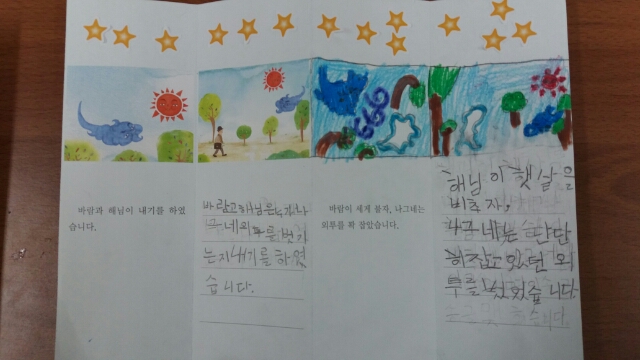 바람과 해님이 내기를 하였
습니다.
바람고 해님은 누가 나
그네외투를 벗기
는지 내기를 하였
습니다.
바람이 세게 불자, 나그네는
외투를 꽉 잡았습니다.
해님이 햇살을
비추자,
나그네는 단단
히 잡고 있던 외
투를 벗었습니다.